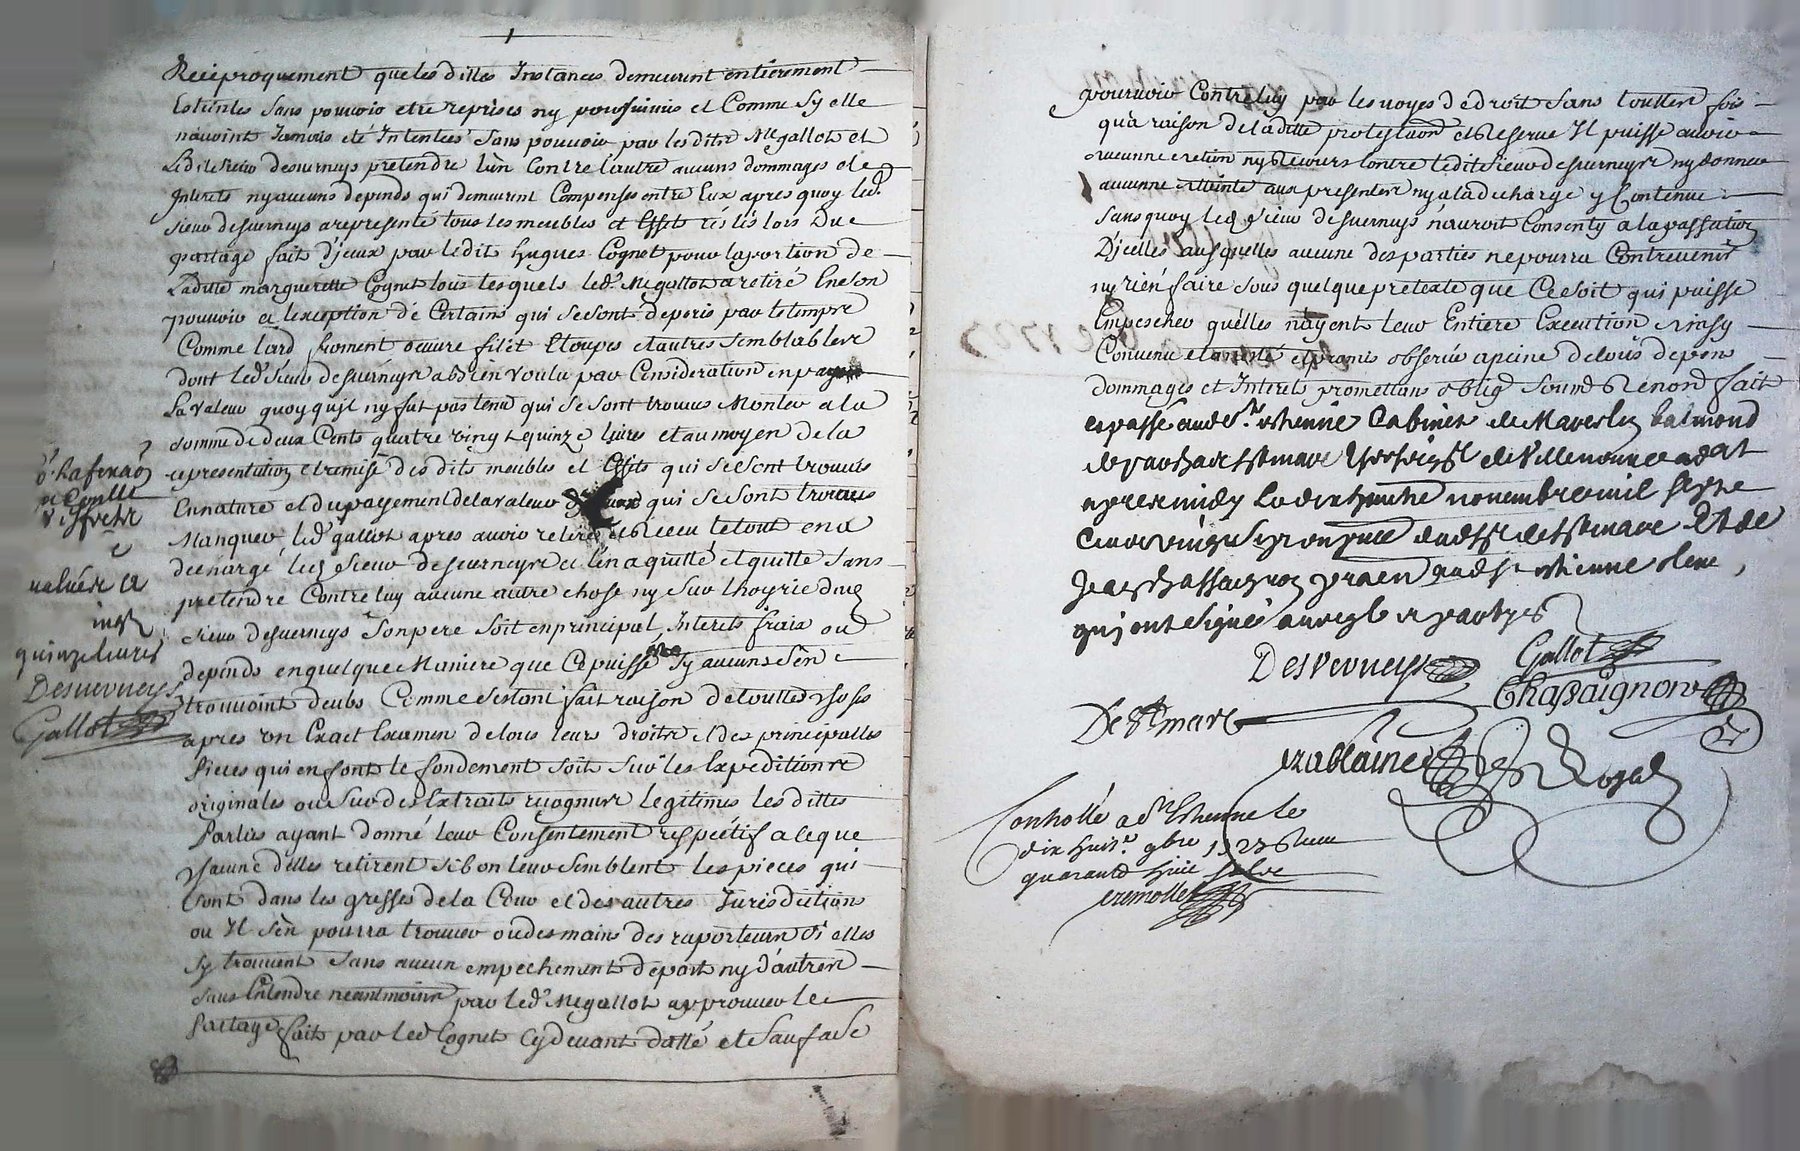 Reciproquement que les dittes Instances demeurent entierement
Esteintes sans pouvoir etre reprises ny poursuivies et Comme sy elle
n'avoint Jamais eté Intentées sans pouvoir par lesdits Me gallot et
Ledit sieur desverneys pretendre l'un Contre l'autre aucuns dommages et
Interets ny aucuns depends qui demeurent Compensés entre Eux apres quoy led.
sieur desverneys a represente tous les meubles et Effets lors Du
partage fait d'jceux par ledit hugues Cognet pour la portion de
Laditte margueritte Cognet tous lesquels led. Me gallot a retiré En son
pouvoir a lexception de Certains qui se sont deperis par le temps
Comme lard froment beurre filet Etoupes et autres semblables
dont led. sieur desverneys a bien voulu par Consideration en payer
La valeur quoy qu'jl ny fut pas tenu qui se sont trouvés Monter a la
somme de deux Cents quatre vingt quinze livres et au moyen de la
representation et remise des dits meubles et Effets qui se sont trouvés
En nature et du payement de la valeur de ceux qui se sont trouvés
Manquer led. gallot apres avoir retiré et Receu le tout en a
dechargé led. sieur desverneys et l'en a quitté et quitte sans
pretendre Contre luy aucune autre chose ny sur lhoyrie dud.
sieur desverneys son pere soit en principal Interets fraix ou
depends en quelque Maniere que Ce puisse etre sy aucuns s'en
trouvoint deubs Comme s'estant fait raison de touttes choses
apres un Exact Examen de tous leurs droits et des principalles
Pieces qui en font le fondement soit sur les Expeditions
originales ou sur des Extraits recognus legitimes les dittes
Parties ayant donné leur Consentement respectif a ce que
chacune d'elles retirent si bon leur semblent les pieces qui
sont dans les greffes de la Cour et des autres Jurisdictions
ou Il s'en pourra trouver ou des mains des raporteurs si elles
sy trouvent sans aucun empechement de part ny d'autre
sans Entendre neantmoins par led. Me gallot approuver le
Partage fait par led. Cognet Cy devant datté et sauf a se
valués a
quinze livres
Desverneys
Gallot
pourvoir Contre luy par les voyes de droit sans touttes fois
qu'a raison de laditte protestation et Reserve Il puisse avoir
aucune action ny Recours Contre ledit sieur desverneys ny donner
aucune atteinte aux presentes ny a la decharge y Contenue
sans quoy led. sieur desverneys n'auroit Consenty a la passation
D'jcelles ausquelles aucune des parties ne pourra Contrevenir
ny rien faire sous quelque pretexte que Ce soit qui puisse
Empescher qu'elles n'ayent leur Entiere Execution ainsy
Convenu et arreté et promis observer a peine de tous depens
dommages et Interets promettans oblig. soumis Renon. fait
et passé aud. st. etienne Cabinet de
apres midy le dix huitiéme novembre mil sept
Cent vingt
qui ont signé avec les parties
Desverneys
Gallot
De St marc
Chassaignon
Controllé a St Etienne le
dix huit. 9bre 1723
quarante huit sols